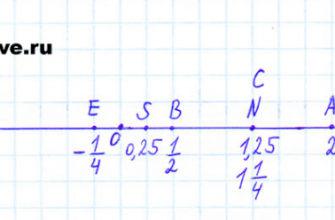 ve.ru
C
E S B N A
-1/4 0 0,25 1/2 1,25 2
1 1/4